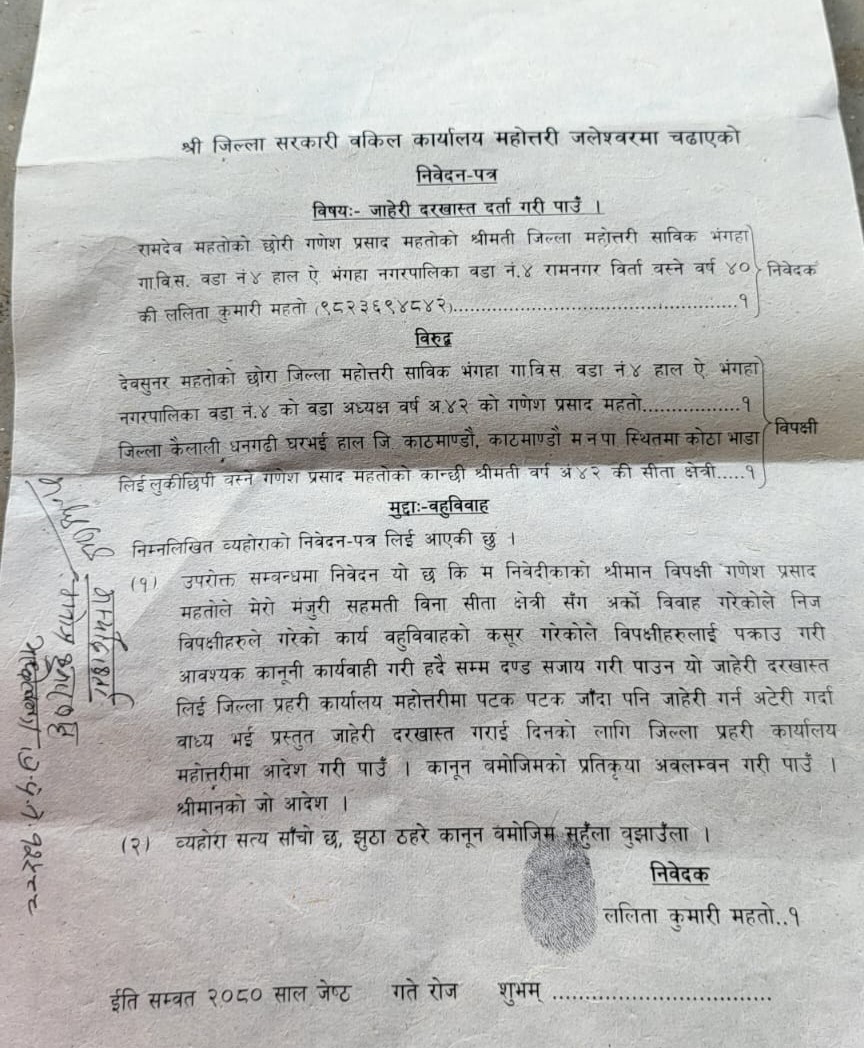 श्री जिल्ला सरकारी वकिल कार्यालय महोत्तरी जलेश्वरमा चढाएको
निवेदन-पत्र
विषयः- जाहेरी दरखास्त दर्ता गरी पाउँ ।
रामदेव महतोको छोरी गणेश प्रसाद महतोको श्रीमती जिल्ला महोत्तरी साविक भंगहा
गा.वि.स. वडा नं ४ हाल ऐ भंगहा नगरपालिका वडा नं.४ रामनगर विर्ता वस्ने वर्ष ४०
की ललिता कुमारी महतो (९८२३६९४८४२)..................................................१
निवेदक
विरुद्व
देवसुनर महतोको छोरा जिल्ला महोत्तरी साविक भंगहा गा.वि.स. वडा नं ४ हाल ऐ भंगहा
नगरपालिका वडा नं.४ को वडा अध्यक्ष वर्ष अ.४२ को गणेश प्रसाद महतो.................१
जिल्ला कैलाली धनगढी घरभई हाल जि. काठमाण्डौ, काठमाण्डौ म.न.पा स्थितमा कोठा भाडा
लिई लुकीछिपी वस्ने गणेश प्रसाद महतोको कान्छी श्रीमती वर्ष अं ४२ की सीता क्षेत्री.....१
विपक्षी
मुद्दाः-वहुविवाह
निम्नलिखित व्यहोराको निवेदन-पत्र लिई आएकी छु ।
(१) उपरोक्त सम्वन्धमा निवेदन यो छ कि म निवेदीकाको श्रीमान विपक्षी गणेश प्रसाद
महतोले मेरो मंजुरी सहमती विना सीता क्षेत्री सँग अर्को विवाह गरेकोले निज
विपक्षीहरुले गरेको कार्य वहुविवाहको कसूर गरेकोले विपक्षीहरुलाई पक्राउ गरी
आवश्यक कानूनी कार्यवाही गरी हदै सम्म दण्ड सजाय गरी पाउन यो जाहेरी दरखास्त
लिई जिल्ला प्रहरी कार्यालय महोत्तरीमा पटक पटक जाँदा पनि जाहेरी गर्न अटेरी गर्दा
वाध्य भई प्रस्तुत जाहेरी दरखास्त गराई दिनको लागि जिल्ला प्रहरी कार्यालय
महोत्तरीमा आदेश गरी पाउँ । कानून वमोजिमको प्रतिकृया अवलम्वन गरी पाउँ ।
श्रीमानको जो आदेश ।
(२) व्यहोरा सत्य साँचो छ, झुठा ठहरे कानून वमोजिम सुहुँला वुझाउँला ।
निवेदक
ललिता कुमारी महतो..१
ईति सम्वत २०८० साल जेष्ट गते रोज शुभम् .................................